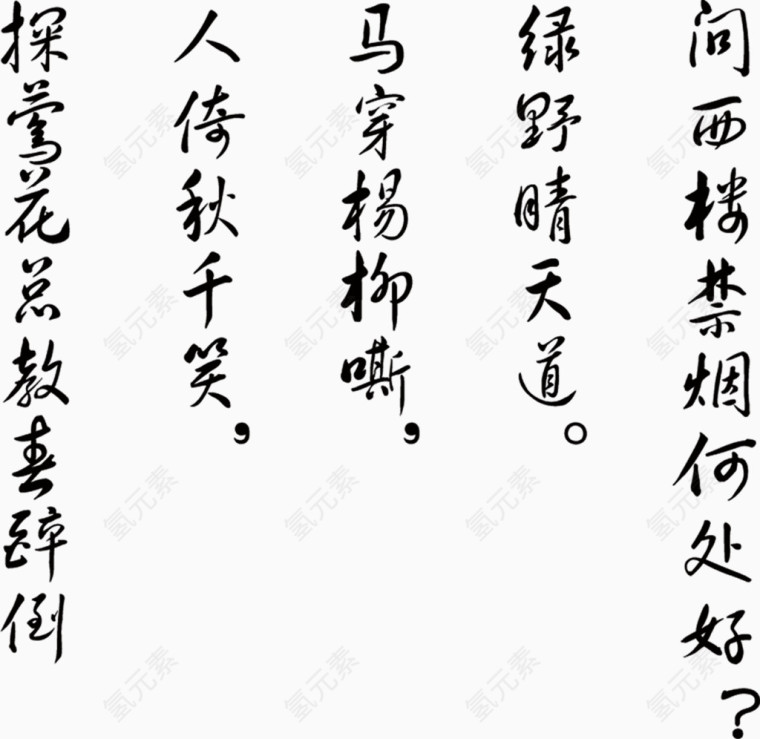 问西楼禁烟何处好？
绿野晴天道。
马穿杨柳嘶，
人倚秋千笑，
探莺花总教春醉倒
氢元素